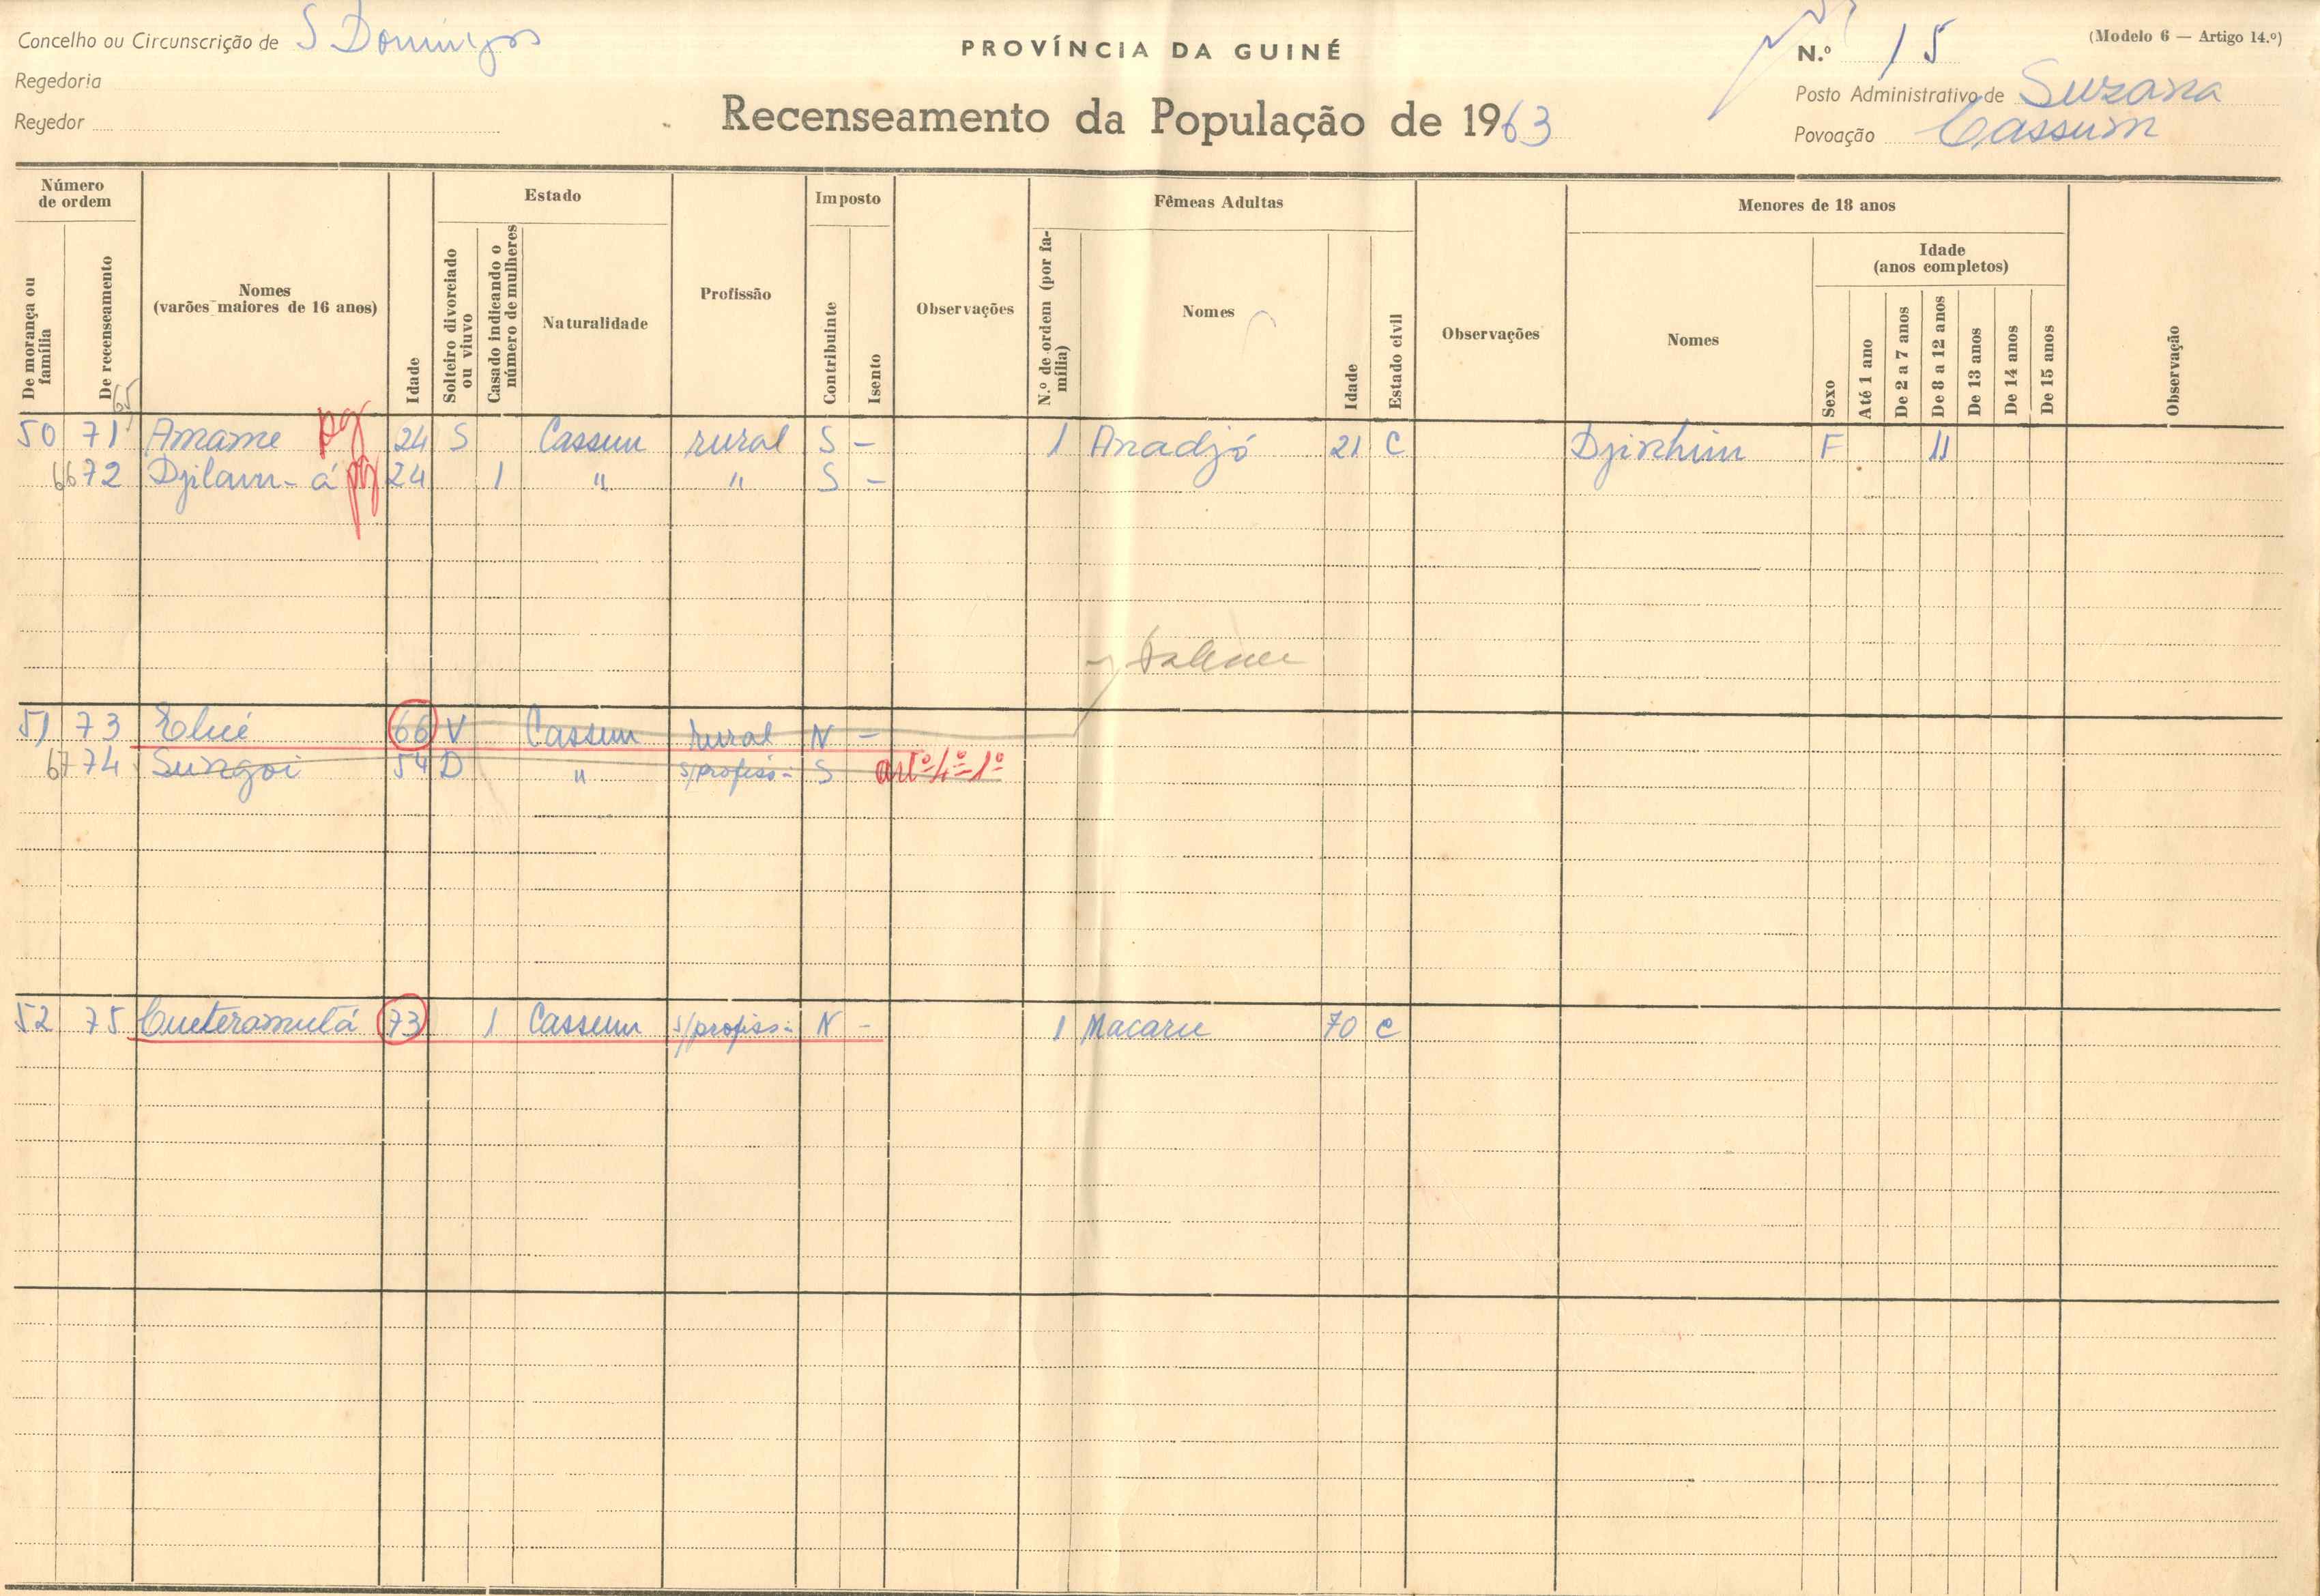 Concelho ou Circunscrição de S Domingos
Regedoria
Regedor
PROVÍNCIA DA GUINÉ
Recenseamento da População de 1963
(Modelo 6 — Artigo 14.º)
N.º 15
Posto Administrativo de Suzana
Povoação Cassum
Número de ordem
De morança ou família
De recenseamento
Nomes
(varões maiores de 16 anos)
Idade
Estado
Solteiro divorciado ou viuvo
Casado indicando o número de mulheres
Naturalidade
Profissão
Imposto
Contribuinte
Isento
Observações
Fêmeas Adultas
N.º de ordem (por família)
Nomes
Idade
Estado civil
Observações
Menores de 18 anos
Nomes
Idade
(anos completos)
Sexo
Até 1 ano
De 2 a 7 anos
De 8 a 12 anos
De 13 anos
De 14 anos
De 15 anos
Observação
65
50 71 Amame pg 24 S Cassum rural S - 1 Anadjó 21 C Djinhim F 11
66 72 Djilam-á pg 24 1 " " S -
51 73 Elué 66 V Cassum rural N -
67 74 Sungoi 54 D " s/profiss- S artº 4º 1º
52 75 Cueteramutá 73 1 Cassum s/profiss- N - 1 Macaru 70 C